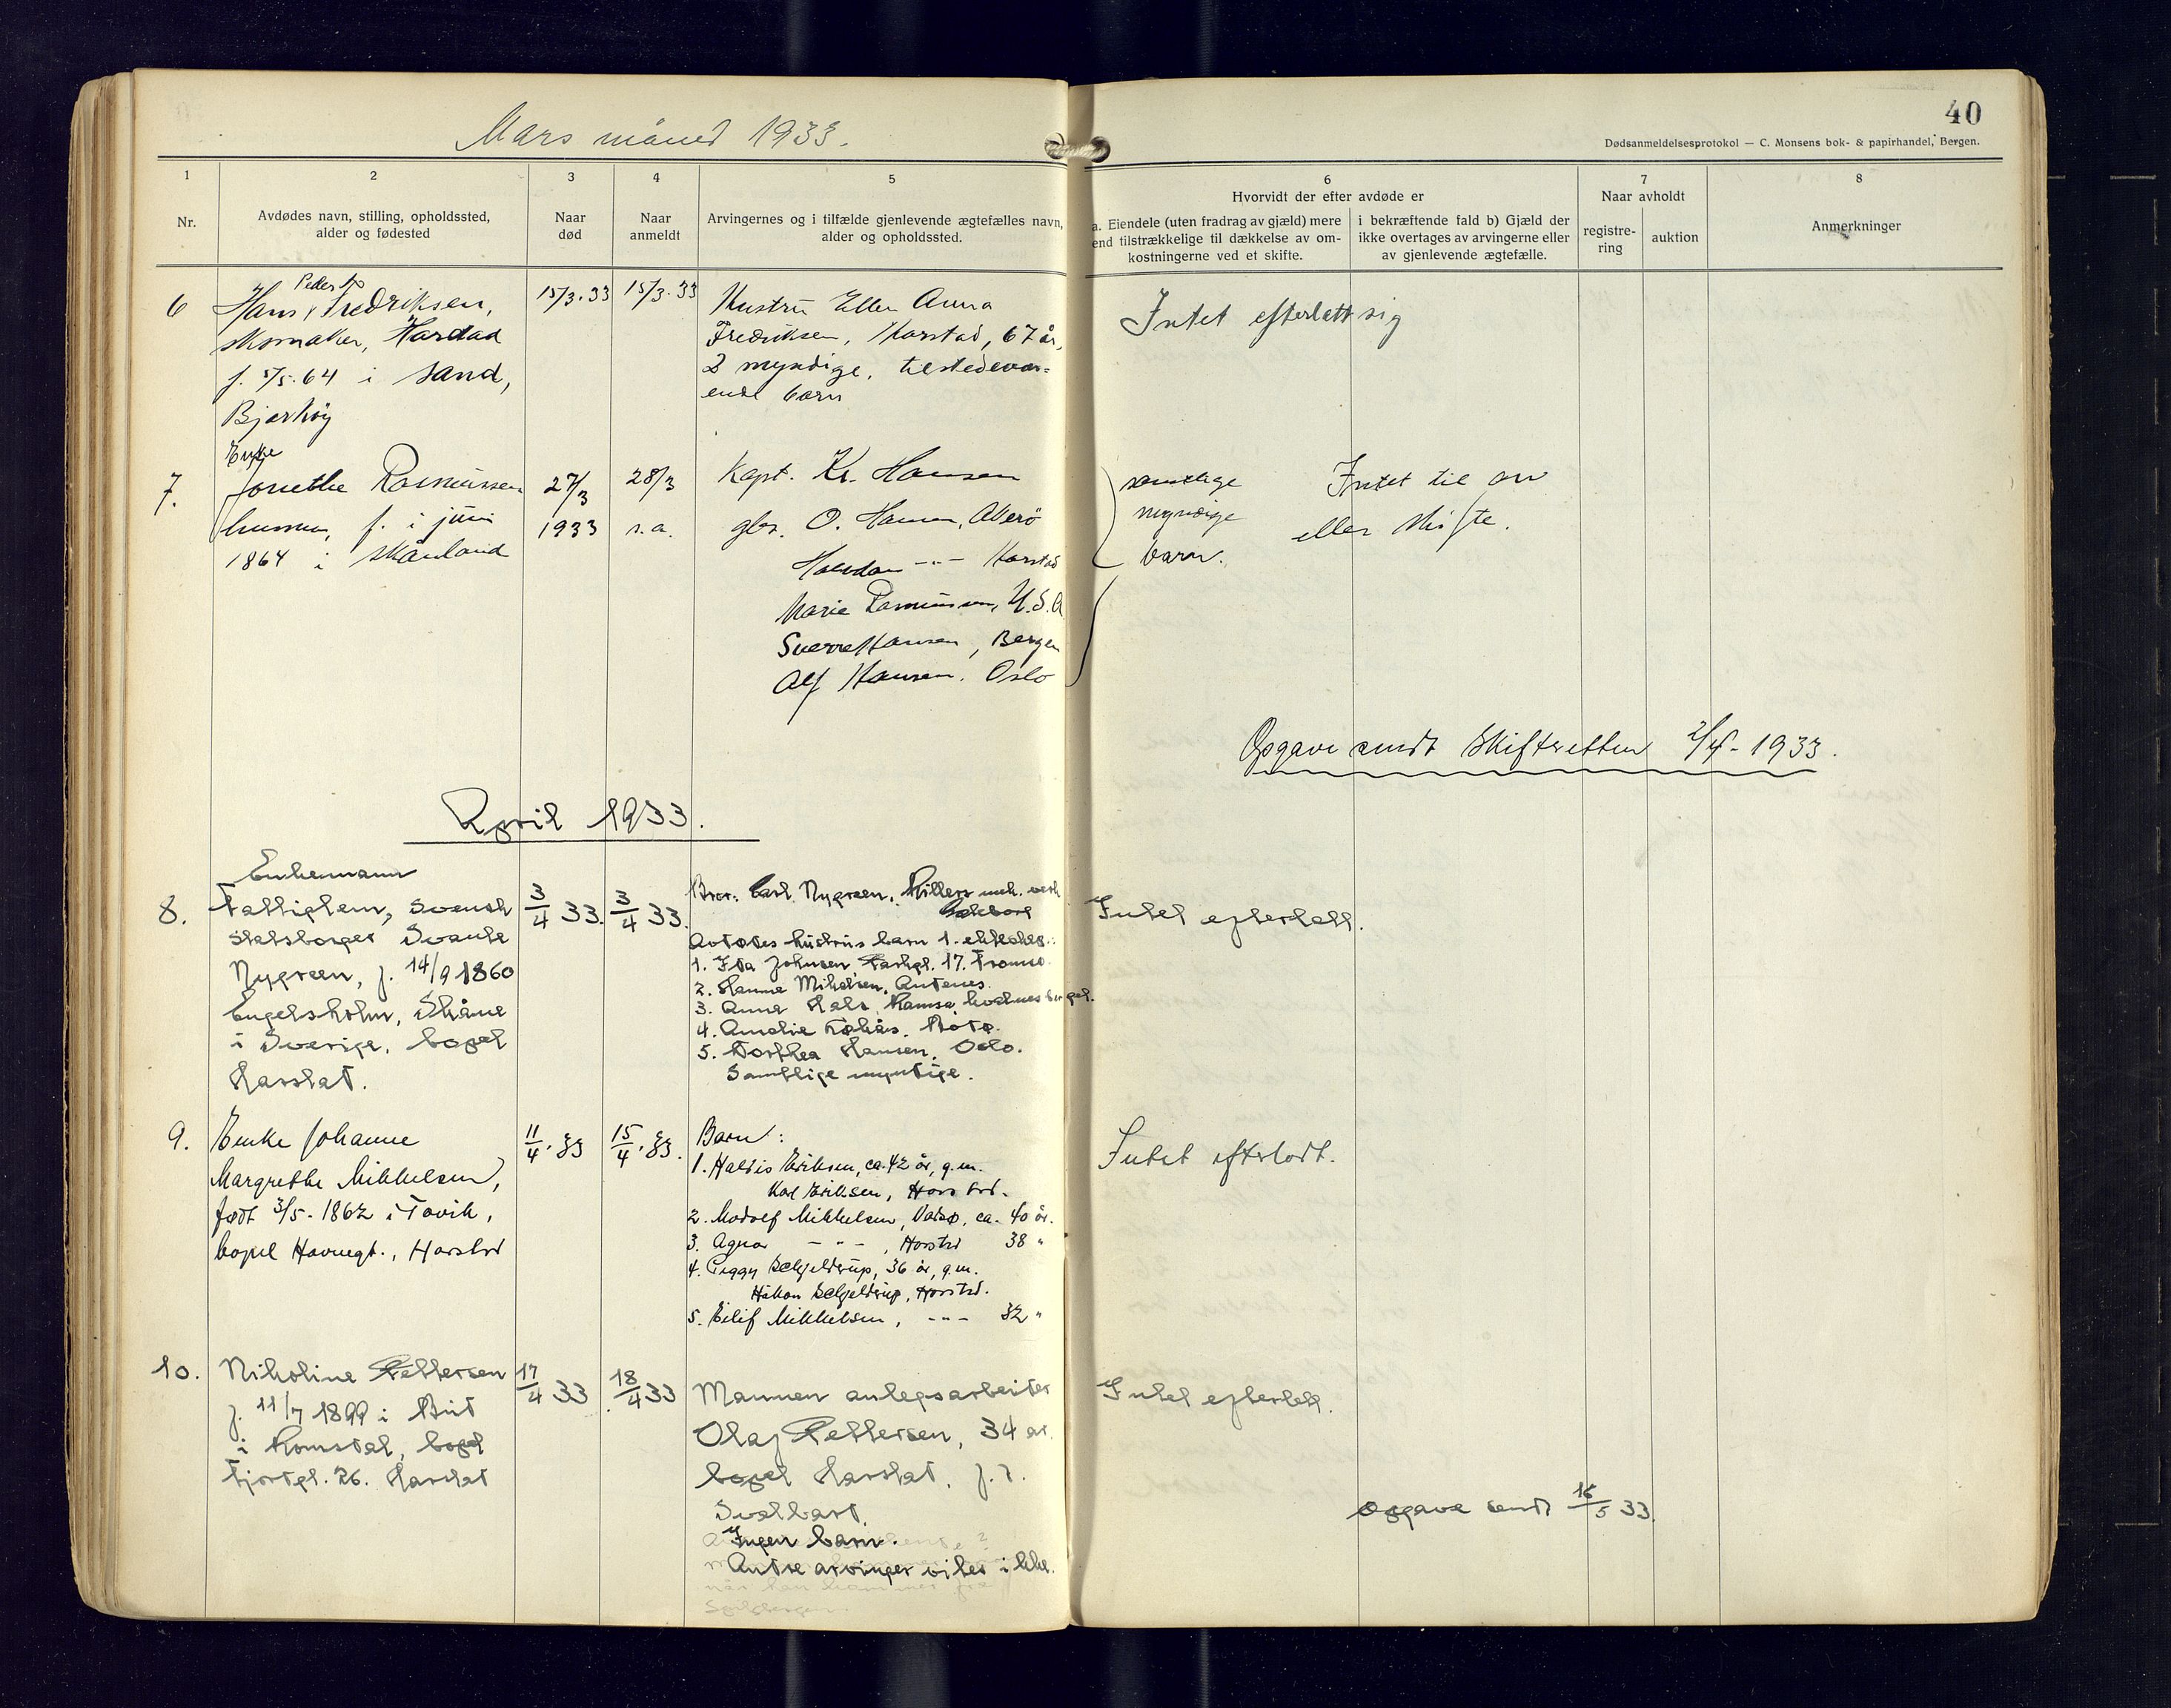 40
Mars måned 1933.
Dødsanmeldelsesprotokol — C. Monsens bok- & papirhandel, Bergen.
1 2 3 4 5 6 7 8
Nr.
Avdødes navn, stilling, opholdssted,
alder og fødested
Naar
død
Naar
anmeldt
Arvingernes og i tilfælde gjenlevende ægtefælles navn,
alder og opholdssted.
Hvorvidt der efter avdøde er
a. Eiendele (uten fradrag av gjæld) mere
end tilstrækkelige til dækkelse av om-
kostningerne ved et skifte.
i bekræftende fald b) Gjæld der
ikke overtages av arvingerne eller
av gjenlevende ægtefælle.
Naar avholdt
registre-
ring
auktion
Anmerkninger
6
Peder
Hans Fredriksen,
skomaker, Harstad
f. 5/5.64 i Sand,
Bjarkøy
15/3.33
15/3.33
Hustru Ellen Anna
Fredriksen, Harstad, 67 år,
2 myndige, tilstedevær-
ende barn
Intet efterlatt sig
7.
Enke
Jonethe Rasmussen
f. i juni
1864 i Skånland
27/3
1933
28/3
s.a.
Kapt. Kr. Hansen
O. Hansen, Averö
Halvdan -"- Harstad
Marie Rasmussen, U.S.A
Sverre Hansen, Bergen
Alf Hansen. Oslo
samtlige
myndige
barn.
Intet til arv
eller skifte.
Opgave sendt Skifteretten 2/4-1933.
April 1933.
8.
Enkemann
Fattiglem, svensk
statsborger Svante
Nygreen, f. 14/9 1860
Engelsholm, Skåne
i Sverige, bopel
Harstad.
3/4 33.
3/4 33.
Bror: Carl Nygreen, mek. verk
Avdødes hustrus barn 1. ekteskap:
1. Ida Johnsen, 17. Tromsø.
2. Hanna Mikalsen,
3. Anna Hals, Ramsa,
4. Amalie Bodø.
5. Dorthea Hansen, Oslo.
Samtlige myndige.
Intet efterlatt.
9.
Enke Johanne
Margrethe Mikkelsen,
født 3/5-1862 i Tovik,
bopel Havnegt., Harstad
11/4.33
15/4.33.
Barn:
1. Haldis Eriksen, ca. 42 år, g.m.
Karl Eriksen, Harstad.
2. Modolf Mikkelsen, Vadsø, ca. 40 år.
3. Agnar -"- , Harstad 38 "
4. Peggy Schjelderup, 36 år, g.m.
Håkon Schjelderup, Harstad.
5. Eilif Mikkelsen, -"- 32 "
Intet efterlatt.
10.
Nikoline Pettersen
f. 11/7 1899 i Bud
i Romsdal, bopel
Fjordgt. 26. Harstad
17/4 33
18/4 33
Mannen anlegsarbeider
Olaf Pettersen, 34 år.
bopel Harstad, f.t.
Svalbard.
Ingen barn.
Andre arvinger vites ikke.
Intet efterlatt.
Opgave sendt 16/5 33.